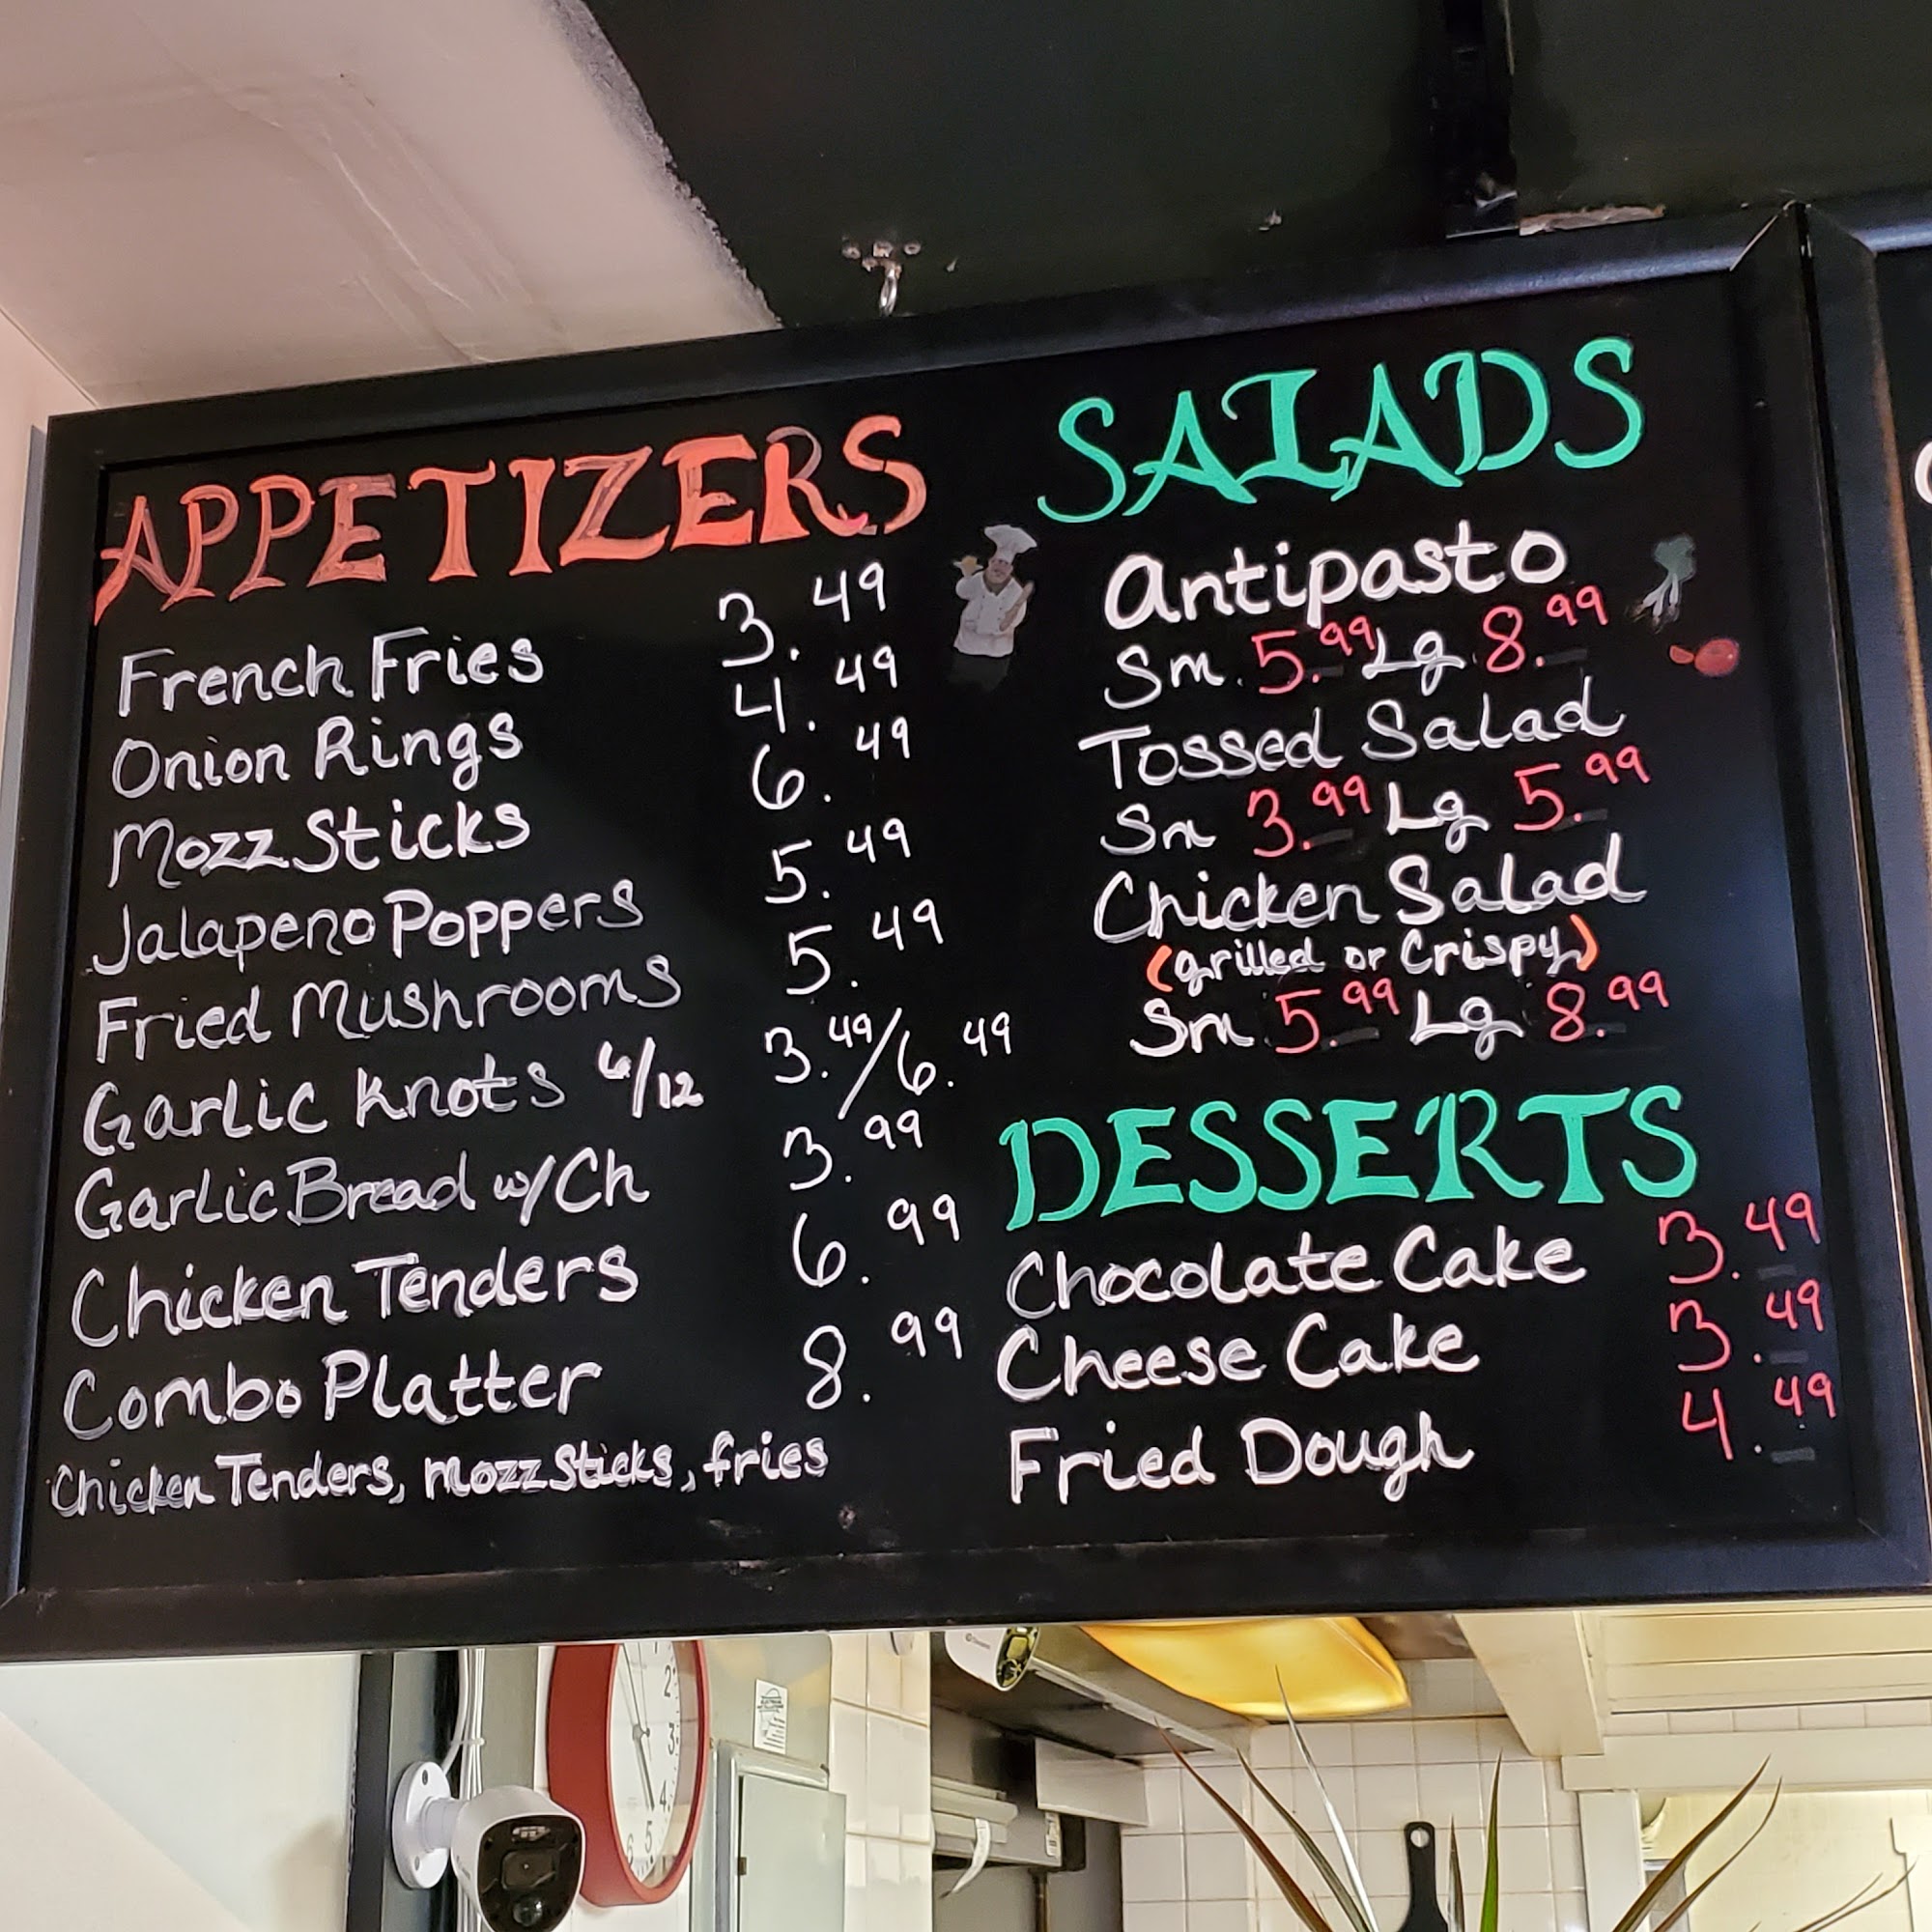 APPETIZERS
French Fries 3.49
Onion Rings 4.49
Mozz Sticks 6.49
Jalapeno Poppers 5.49
Fried Mushrooms 5.49
Garlic Knots 6/12 3.49/6.49
Garlic Bread w/Ch 3.99
Chicken Tenders 6.99
Combo Platter 8.99
Chicken Tenders, Mozz Sticks, fries
SALADS
Antipasto
Sm. 5.99 Lg 8.99
Tossed Salad
Sm 3.99 Lg 5.99
Chicken Salad
(grilled or Crispy)
Sm 5.99 Lg 8.99
DESSERTS
Chocolate Cake 3.49
Cheese Cake 3.49
Fried Dough 4.49
1
2
3
4
5
6